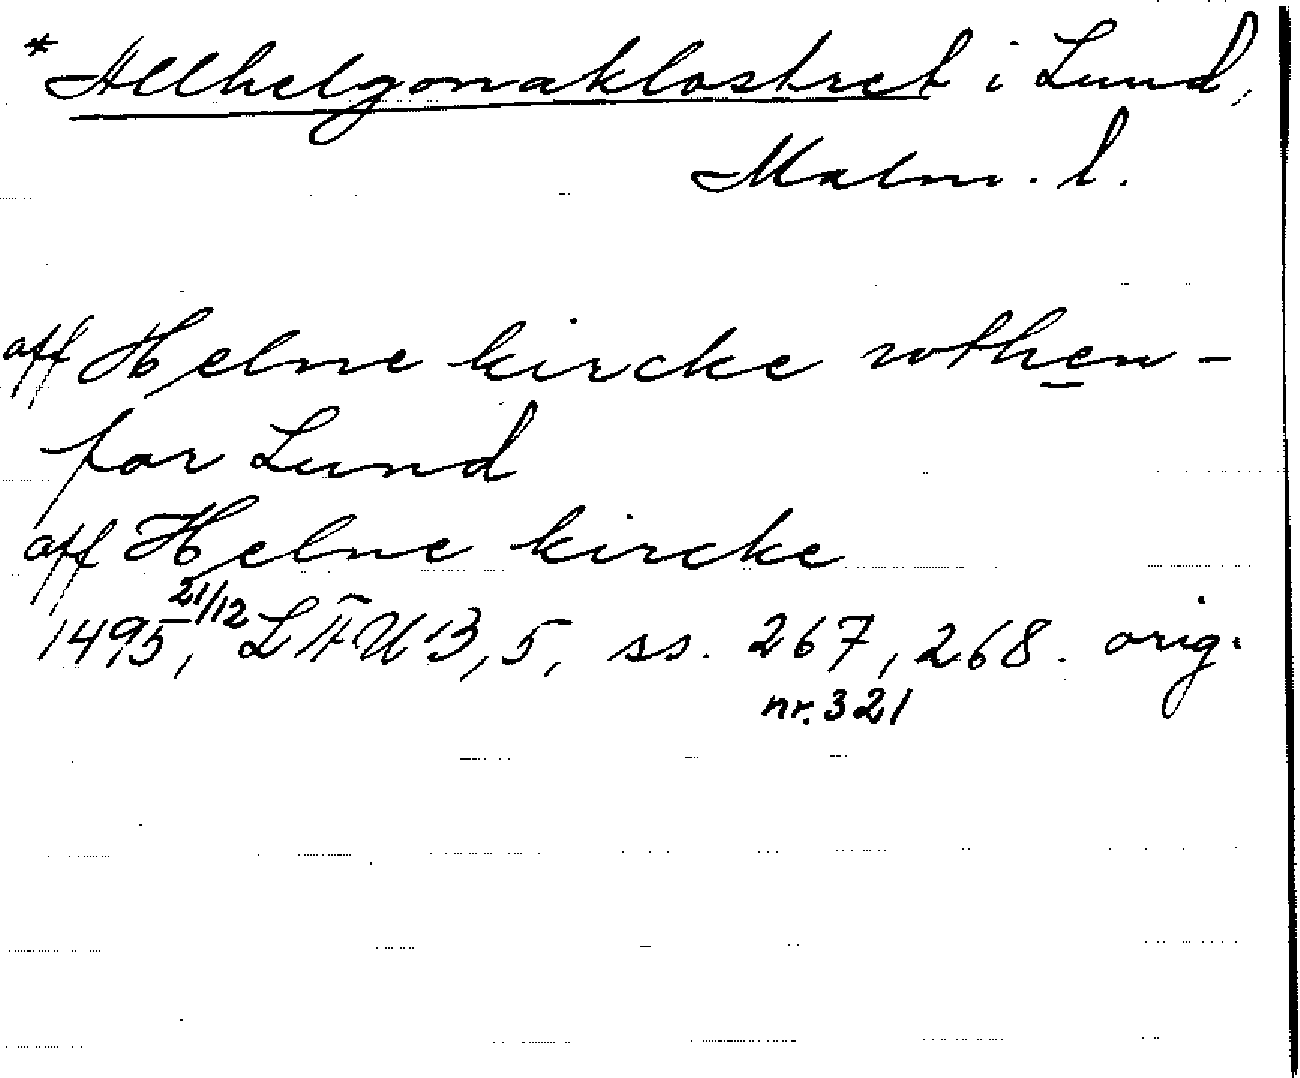 *Allhelgonaklostret i Lund,
Malm. l.
aff Helne kircke vothen-
for Lund
aff Helne kircke
1495, 21/12 LÄUB, 5, ss. 267, 268. orig.
nr. 321